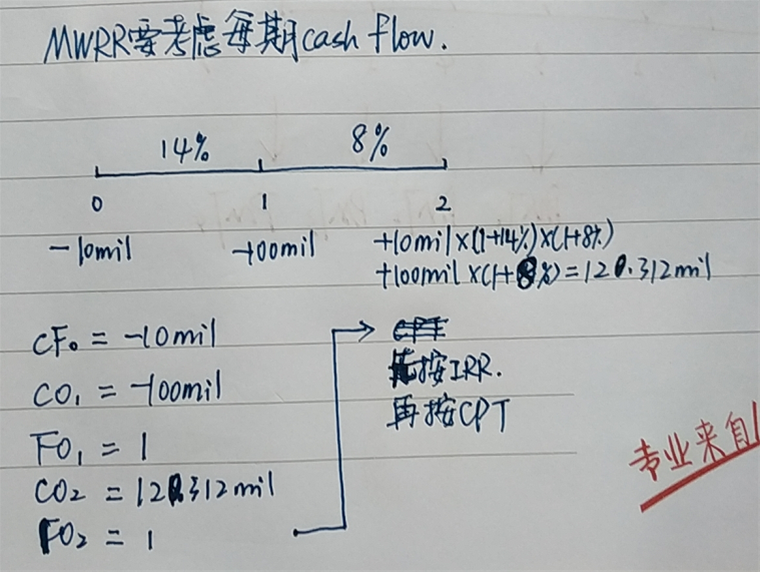 MWRR要考虑每期cash flow.
14% 8%
0 1 2
-10mil -100mil +10mil×(1+14%)×(1+8%)
+100mil×(1+8%)=120.312mil
CF₀ = -10mil
CO₁ = -100mil
FO₁ = 1
CO₂ = 120.312mil
FO₂ = 1
CPT
先按IRR.
再按CPT
专业来自